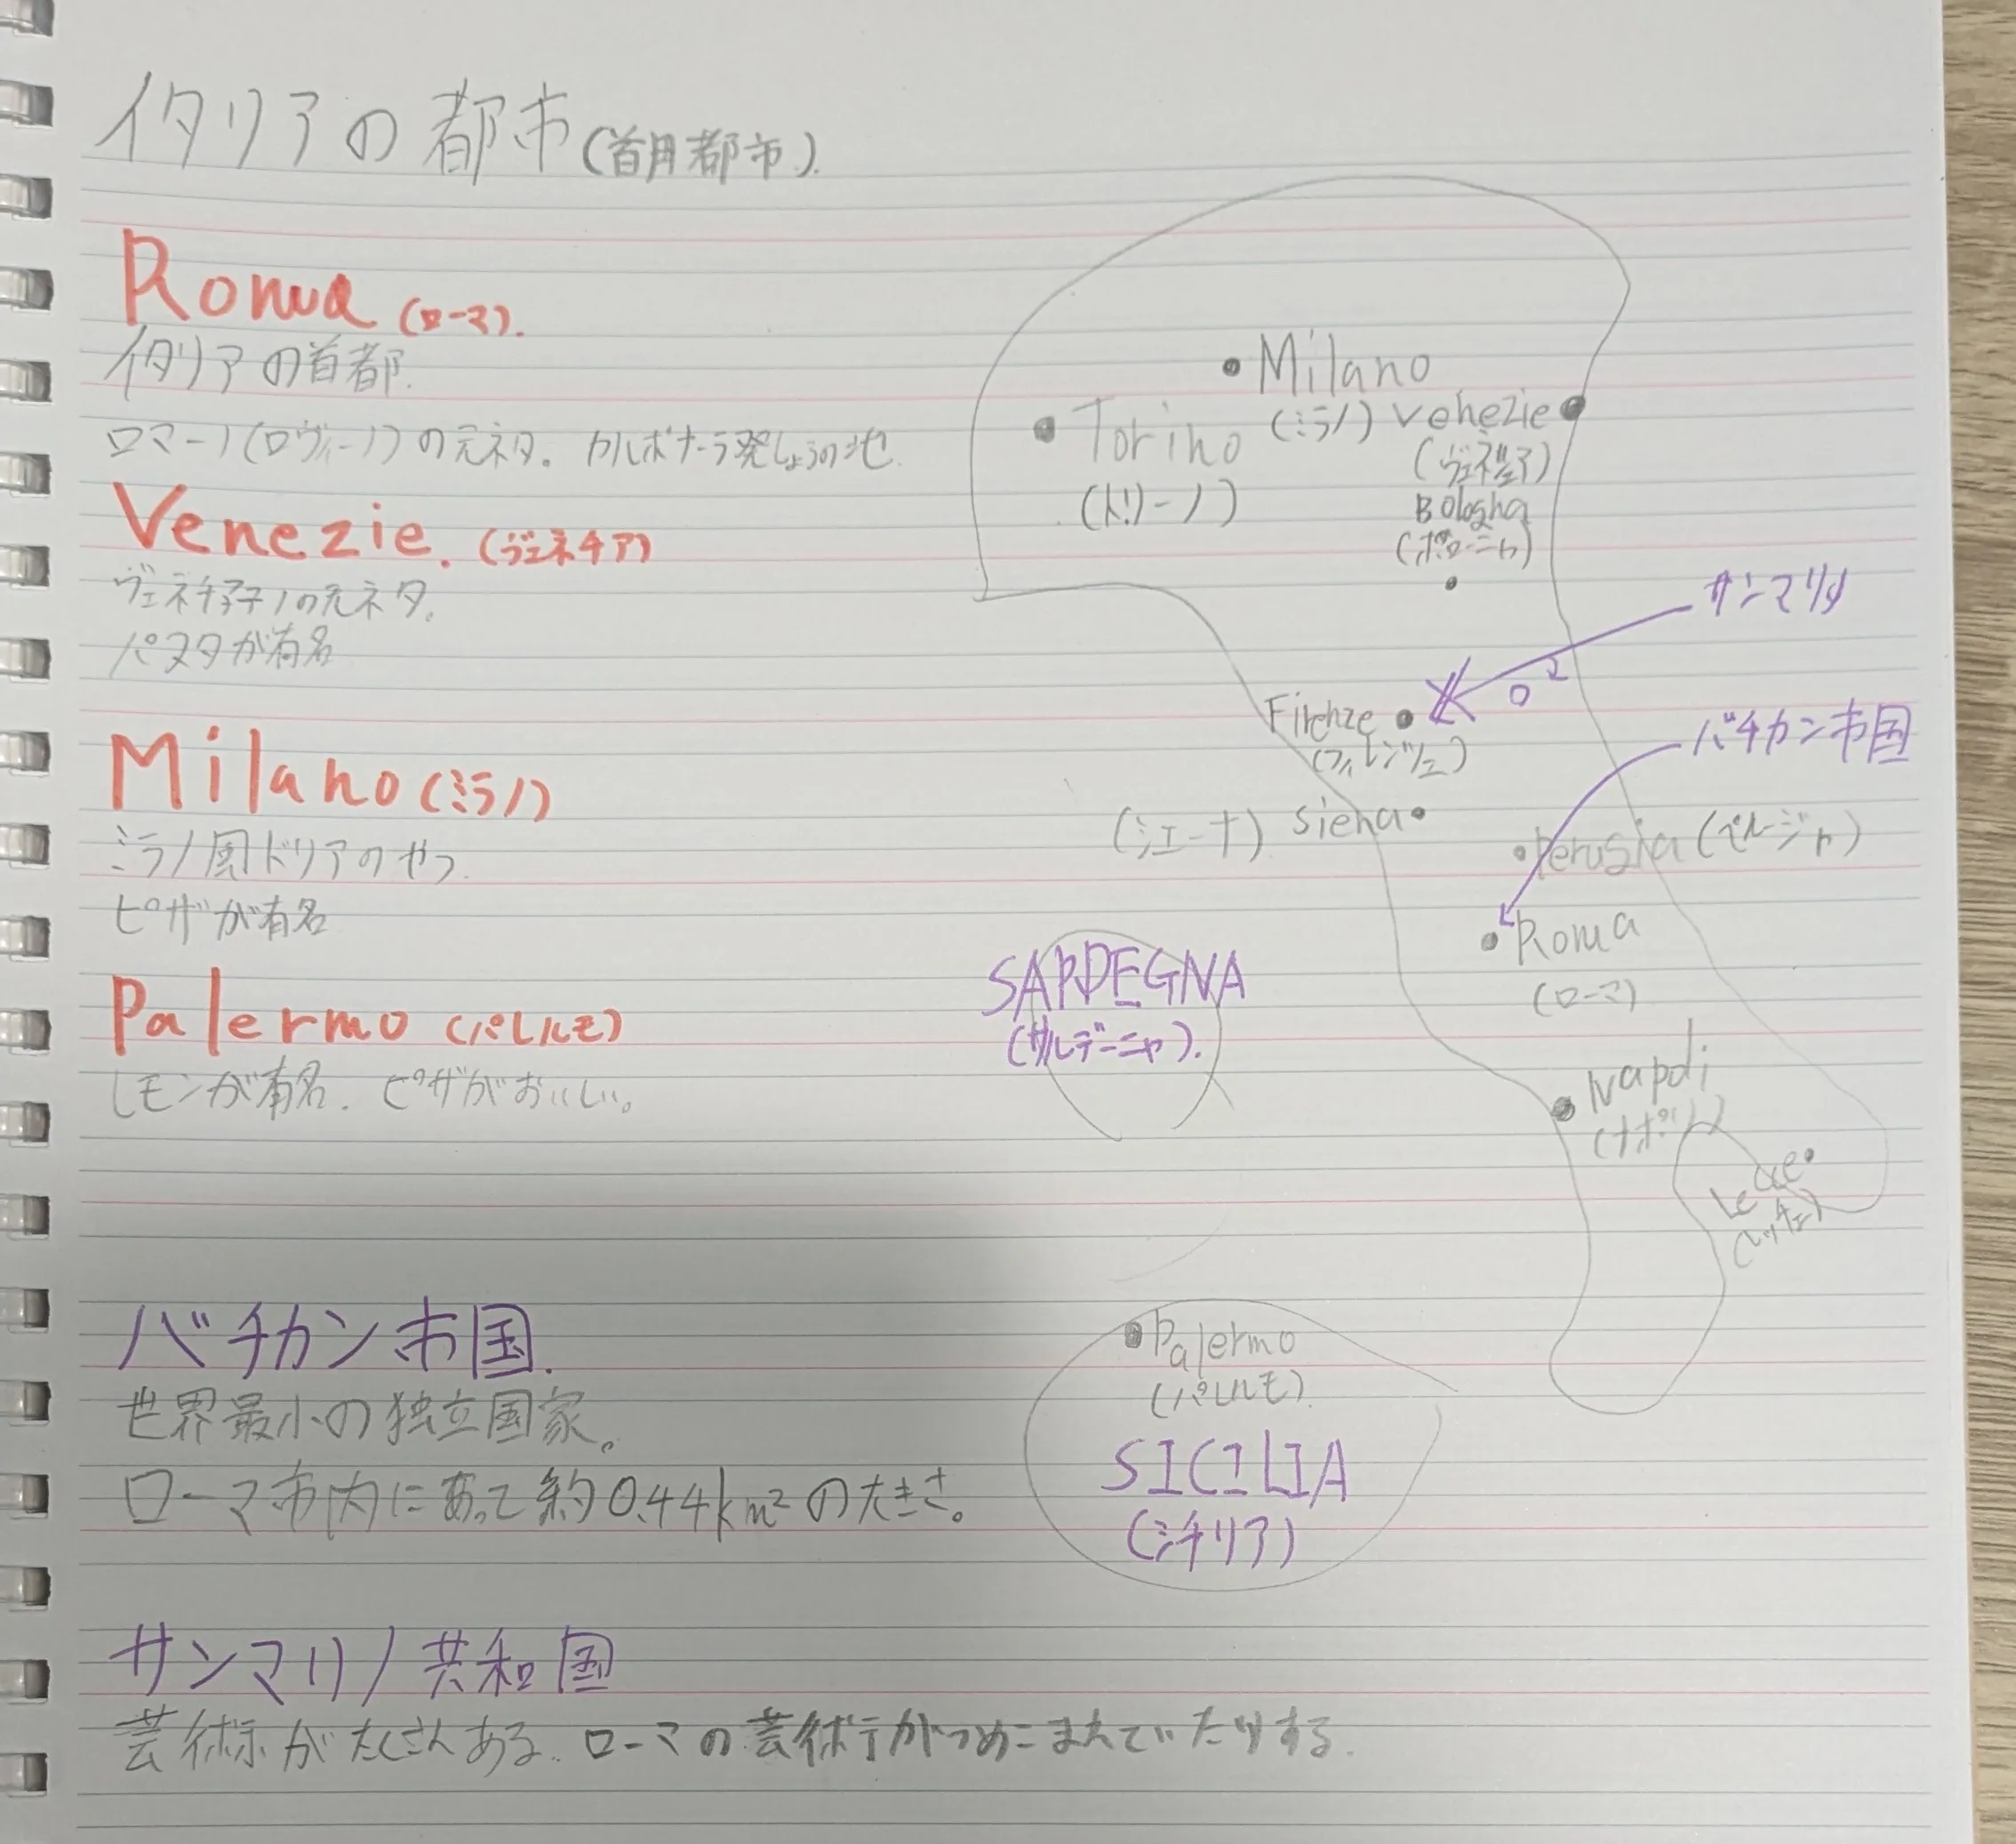 イタリアの都市(首月都市).
Roma (ローマ).
イタリアの首都.
ロマーノ(ロヴィーノ)の元ネタ。カルボナーラ発しょうの地.
Venezie. (ヴェネチア)
ヴェネチアーノの元ネタ.
パスタが有名
Milano (ミラノ)
ミラノ風ドリアのやつ.
ピザが有名
Palermo (パレルモ)
レモンが有名. ピザがおいしい。
バチカン市国.
世界最小の独立国家。
ローマ市内にあって約0.44km²の大きさ。
サンマリノ共和国
芸術がたくさんある. ローマの芸術がつめこまれていたりする.
Milano
(ミラノ)
Torino
(トリーノ)
Venezie
(ヴェネツィア)
Bologna
(ボローニャ)
サンマリノ
Firenze
(フィレンツェ)
バチカン市国
(シエーナ) Siena
Perugia (ペルージャ)
Roma
(ローマ)
SARDEGNA
(サルデーニャ).
Napoli
(ナポリ)
Lecce
(レッチェ)
Palermo
(パレルモ)
SICILIA
(シチリア)